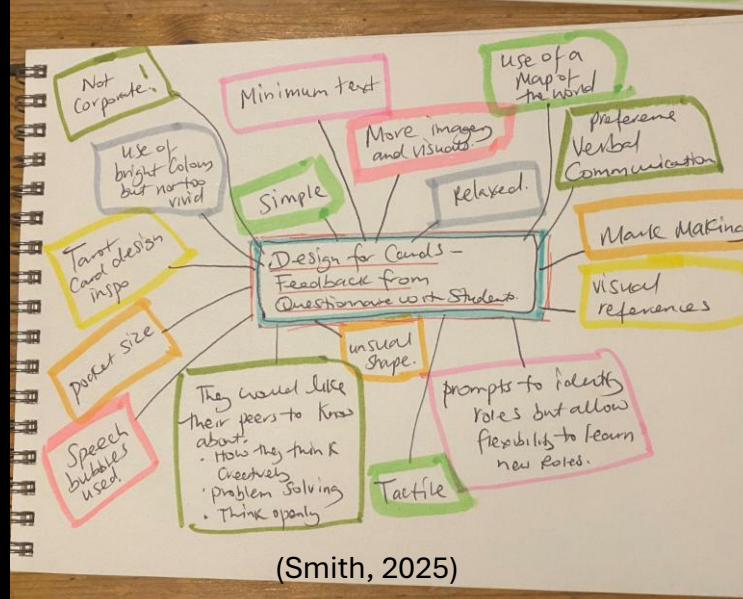 Not
Corporate!
Minimum text
use of a
Map of
the world
use of
bright colours
but not too
vivid
More images
and visuals.
preference
Verbal
Communication
Simple
Relaxed.
Tarot
Card design
inspo
Design for Cards -
Feedback from
Questionnaire with Students.
Mark Making
visual
references
pocket size
unsual
shape.
They would like
their peers to know
about:
• How they think
Creatively
• problem solving
• Think openly
prompts to identify
roles but allow
flexibility to learn
new roles.
Speech
bubbles
used.
Tactile
(Smith, 2025)